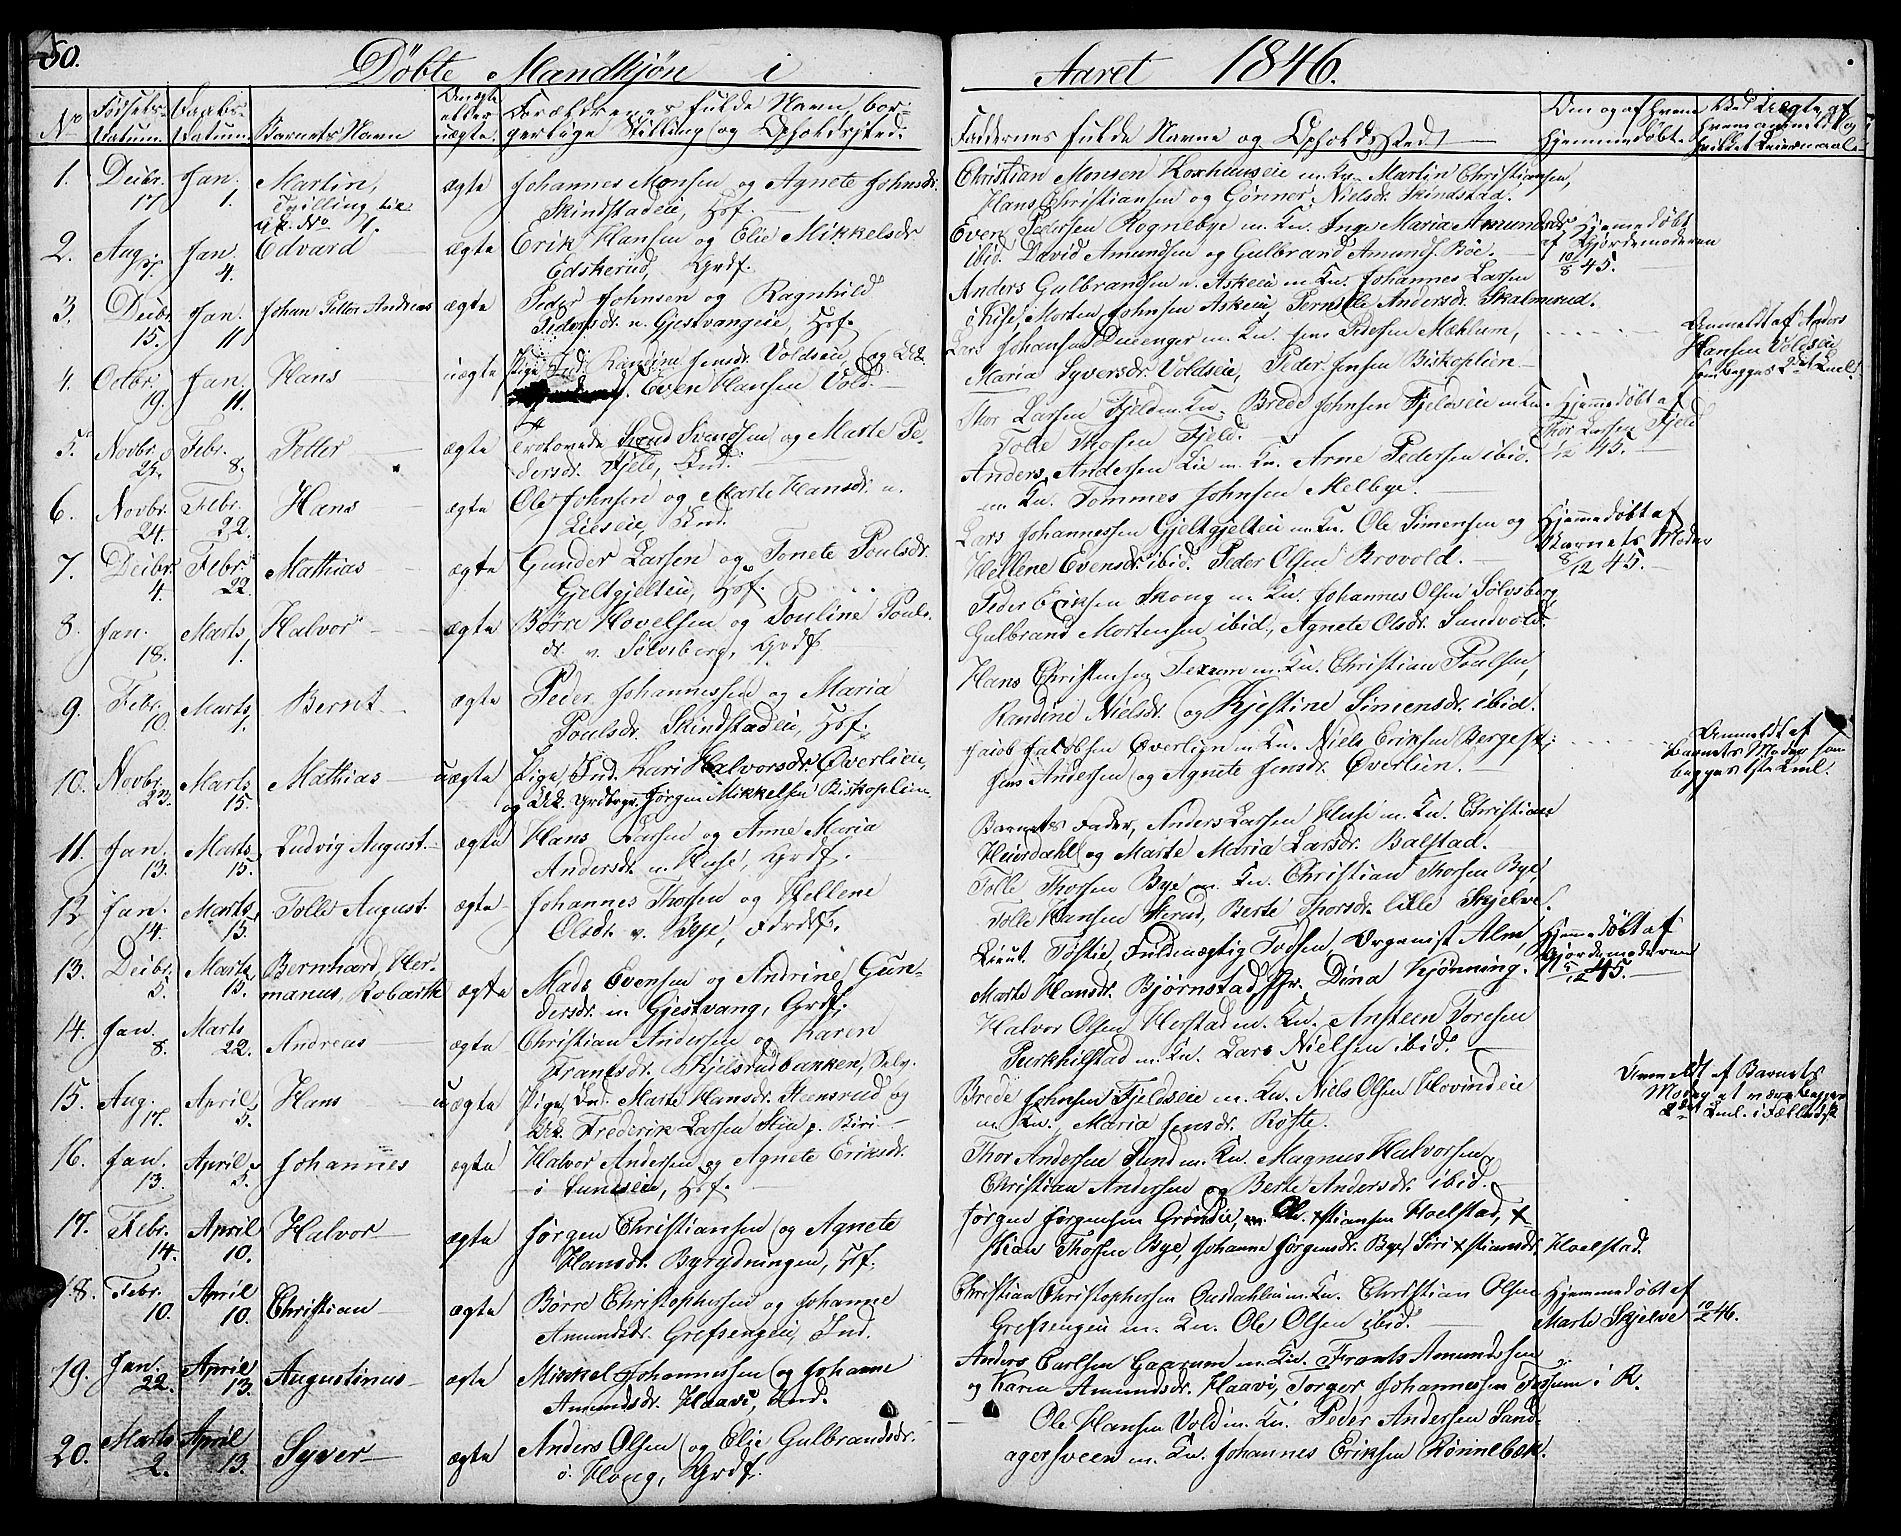 60.
Døbte Mandkjøn i Aaret 1846.
No Fødsels-Datum. Daabs-Datum. Barnets Navn Om ægte eller uægte. Forældrenes fulde Navn, borgerlige Stilling og Opholdssted.
Faddernes fulde Navne og Opholdssted Om og af hvem hjemmedøbt.
1. Decbr. 17. Jan. 1. Martin, ægte Johannes Monsen og Agnete Johnsdr.
Tvilling til
No 1.
Skindstadeie, Hsf.
Christian Monsen Korshuseie m. Kv. Martin Christiansen,
Hans Christiansen og Gønner Nielsdr. Skindstad.
2. Aug. Jan. 4. Edvard ægte Erik Hansen og Elie Mikkelsdr.
Edskerud, Grdf.
Even Pedersen Rognebye m. Kv. Inge Maria Amundsdr.
ibid. David Amundsen og Gulbrand Amunds. Bøe.
Hjemmedøbt af Gjordemoderen 10/8 45.
3. Decbr. 15. Jan. 11. Johan Petter Andreas ægte Peder Johnsen og Ragnhild
Pedersdr. n. Gjestvangeie, Hsf.
Anders Gulbrandsen n. Askeie m. Kv. Johannes Larsen
Morten Johnsen Askeie Pernille Andersdr. Skalmerud.
4. Octbr. 19. Jan. 11. Hans uægte Pige Ind. Randine Jensdr. Voldseie, og
Even Hansen Vold.
Lars Johansen m. Kv. Jens Pedersen Mæhlum,
Maria Syversdr. Voldseie, Peder Jensen Biskoplien
Anmeldt af Anders
Hansen Voldseie
som begges 2det Leml.
5. Novbr. 25. Febr. 8. Petter ægte Svend Svendsen og Marte Pe-
dersdr. Fjeld, Ind.
Thor Larsen Fjeld m. Kv. Brede Johnsen Fjeldseie m. Kv.
Tolle Thorsen Fjeld.
Hjemmedøbt af
Thor Larsen Fjeld
/12 45.
6. Novbr. 24. Febr. 22. Hans ægte Ole Johnsen og Marte Hansdr. n.
Lieseie, Ind.
Anders Andersen Lie m. Kv. Arne Pedersen ibid.
m. Kv. Tommes Johnsen Melbye.
7. Decbr. 4. Febr. 22. Mathias ægte Gunder Larsen og Tonete Poulsdr.
Gjeltgjelteie, Hsf.
Lars Johannessen Gjeltgjelteie m. Kv. Ole Simensen og
Hellene Evensdr. ibid. Peder Olsen Brovold.
Hjemmedøbt af
Barnets Moder
8/12 45.
8. Jan. 18. Marts 1. Halvor ægte Børre Hovelsen og Pouline Pouls-
dr. v. Sølvsberg, Grdf.
Peder Eriksen Skong m. Kv. Johannes Olsen Sølvsberg,
Gulbrand Mortensen ibid, Agnete Olsdr. Sundvold.
9. Febr. 10. Marts 1. Bernt ægte Peder Johannessen og Maria
Poulsdr. Skindstadeie, Hsf.
Hans Christensen m. Kv. Christian Poulsen,
Randine Nielsdr. og Kjestine Simensdr. ibid.
10. Novbr. 23. Marts 15. Mathias uægte Pige Ind. Kari Halvorsdr. Øverlien,
og Jørgen Mikkelsen Biskoplien.
Jacob Jacobsen Øverlien m. Kv. Niels Eriksen Berge
Jens Andersen og Agnete Jensdr. Øverlien.
Anmeldt af
Barnets Moder som
begges 1ste Leml.
11. Jan. 13. Marts 15. Ludvig August ægte Hans Larsen og Anne Maria
Andersdr. n. Huse, Grdf.
Barnets Fader, Anders Larsen Huse m. Kv. Christian
Heierdahl og Marte Maria Larsdr. Balstad.
12. Jan. 14. Marts 15. Tolle August ægte Johannes Thorsen og Hellene
Olsdr. v. Bye,
Tolle Thorsen Bye m. Kv. Christian Thorsen Bye
Tolle Hansen Sterud, Berte Thorsdr. lille Skjelve.
13. Decbr. 5. Marts 15. Bernhard Her-
manus Robarth ægte Mads Evensen og Andrine Gun-
dersdr. m. Gjestvang, Grdf.
Lieut. Fuldmægtig Organist Alm,
Marte Hansdr. Bjørnstad, Jfr. Dina Hjønning.
Hjemmedøbt af
Gjordemoderen
5/12 45.
14. Jan. 8. Marts 22. Andreas ægte Christian Andersen og Karen
Frantsdr. Skjelsrudbakken, Selv.
Halvor Olsen Herstad m. Kv. Ansteen Toresen
m. Kv. Lars Nielsen ibid.
15. Aug. 17. April 5. Hans uægte Pige Ind. Marte Hansdr. Steensrud og
Frederik Larsen Stie p. Biri
Brede Johnsen Fjeldseie m. Kv. Niels Olsen Hovindeie
m. Kv., Maria Jensdr. Røste.
Anmeldt af Barnets
Moder at være begges
2det Leml. i Fællesskb.
16. Jan. 13. April 5. Johannes ægte Halvor Andersen og Agnete Eriksdr.
i Sundseie, Hsf.
Thor Andersen Sund m. Kv. Magnus Halvorsen,
Christian Andersen og Berte Andersdr. ibid.
17. Febr. 14. April 10. Halvor ægte Jørgen Christiansen og Agnete
Hansdr. Byrydningen, Hsf.
Jørgen Jørgensen Grøndie, Ole Xstiansen Hoelstad, X-
stian Thorsen Bye, Johanne Jørgensdr. Bye, Siri Xstiansdr. Hoelstad.
18. Febr. 10. April 10. Christian ægte Børre Christophersen og Johanne
Amundsdr. Grefsengeie, Ind.
Christian Christophersen m. Kv. Christian Olsen
Grefsengeie m. Kv. Ole Olsen ibid.
Hjemmedøbt af
Marte Skjelve 10/2 46.
19. Jan. 22. April 13. Augustinus ægte Mikkel Johannessen og Johanne
Amundsdr. Haavi, Ind.
Anders Carlsen Gaarum m. Kv. Frants Amundsen
og Karen Amundsdr. Haavi, Torger Johannessen Fossum i R.
20. Marts 2. April 13. Syver ægte Anders Olsen og Elie Gulbrandsdr.
ø. Houg, Grdf.
Ole Hansen Vold m. Kv. Peder Andersen Sand-
agersveen m. Kv. Johannes Eriksen Rønnebæk.